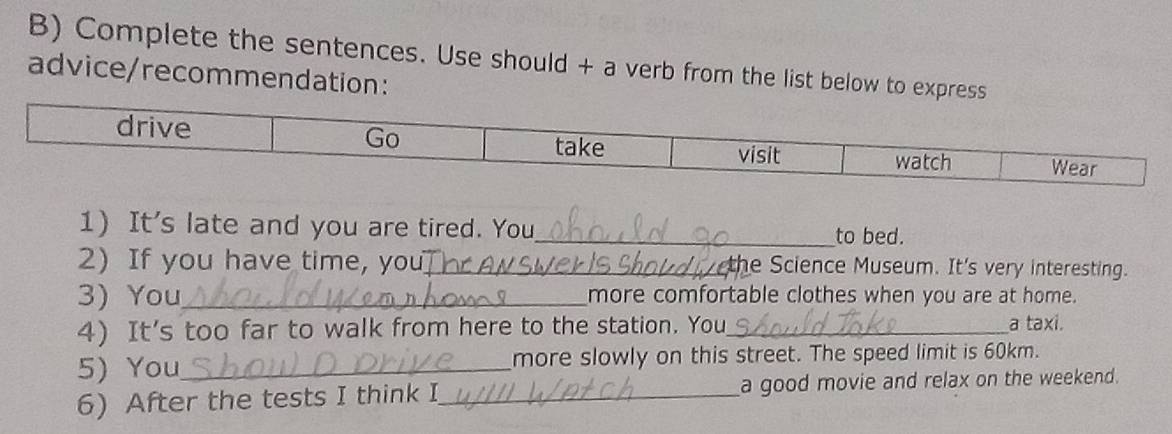 B) Complete the sentences. Use should + a verb from the list below to express
advice/recommendation:
drive Go take visit watch Wear
1) It's late and you are tired. You should go to bed.
2) If you have time, you The ANSwer Is Should the Science Museum. It's very interesting.
3) You should wear home more comfortable clothes when you are at home.
4) It's too far to walk from here to the station. You Should Take a taxi.
5) You ShoulD Drive more slowly on this street. The speed limit is 60km.
6) After the tests I think I will Watch a good movie and relax on the weekend.